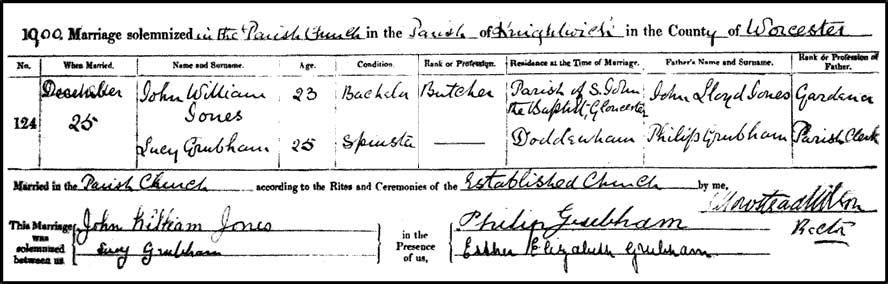 1900. Marriage solemnized in the Parish Church in the Parish of Knightwick in the County of Worcester
No. When Married. Name and Surname. Age. Condition. Rank or Profession. Residence at the Time of Marriage. Father's Name and Surname. Rank or Profession of Father.
124 December 25 John William Jones 23 Bachelor Butcher Parish of S. John the Baptist, Gloucester John Lloyd Jones Gardener
Lucy Grubham 25 Spinster — Doddenham Philip Grubham Parish Clerk
Married in the Parish Church according to the Rites and Ceremonies of the Established Church by me,
Rector
This Marriage was solemnized between us, John William Jones in the Presence of us, Philip Grubham
Lucy Grubham Esther Elizabeth Grubham